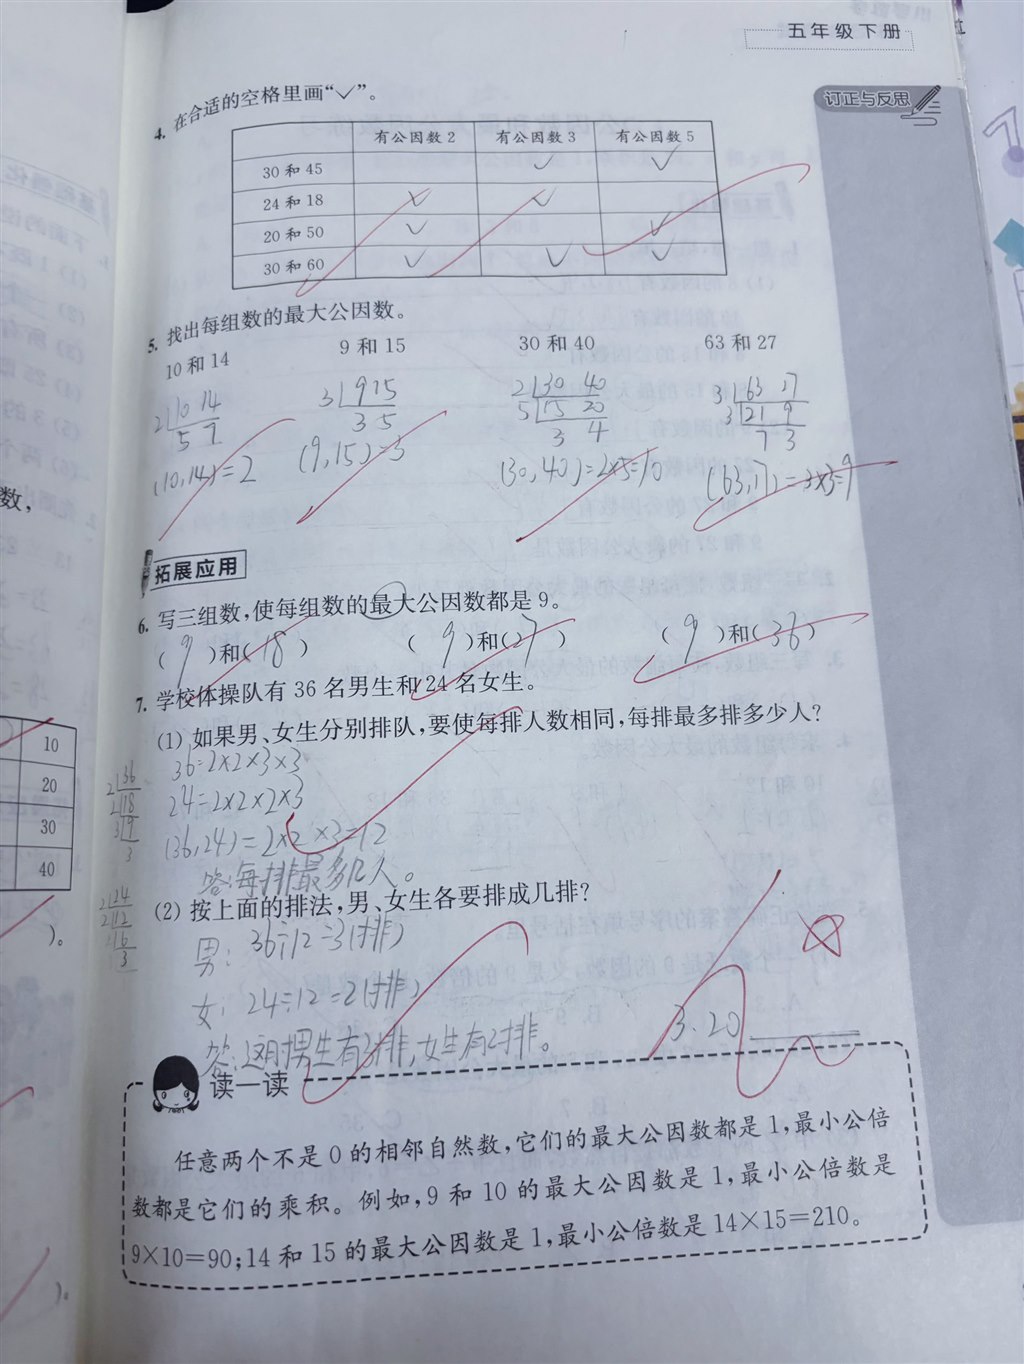 五年级下册
订正与反思
4. 在合适的空格里画“✓”。
有公因数2 有公因数3 有公因数5
30和45 ✓ ✓
24和18 ✓ ✓
20和50 ✓ ✓
30和60 ✓ ✓ ✓
5. 找出每组数的最大公因数。
10和14 9和15 30和40 63和27
2 10 14 3 9 15 2 30 40 3 63 27
5 7 3 5 5 15 20 3 21 9
3 4 7 3
(10,14)=2 (9,15)=3 (30,40)=2×5=10 (63,27)=3×3=9
拓展应用
6. 写三组数,使每组数的最大公因数都是9。
(9)和(18) (9)和(27) (9)和(36)
7. 学校体操队有36名男生和24名女生。
(1) 如果男、女生分别排队,要使每排人数相同,每排最多排多少人?
36=2×2×3×3
24=2×2×2×3
(36,24)=2×2×3=12
答:每排最多12人。
2 36
2 18
3 9
3
2 24
2 12
2 6
3
(2) 按上面的排法,男、女生各要排成几排?
男: 36÷12=3(排)
女: 24÷12=2(排)
男生有3排,女生有2排。
3.20
读一读
任意两个不是0的相邻自然数,它们的最大公因数都是1,最小公倍
数都是它们的乘积。例如,9和10的最大公因数是1,最小公倍数是
9×10=90;14和15的最大公因数是1,最小公倍数是14×15=210。
数,
10
20
30
40
)。
)。